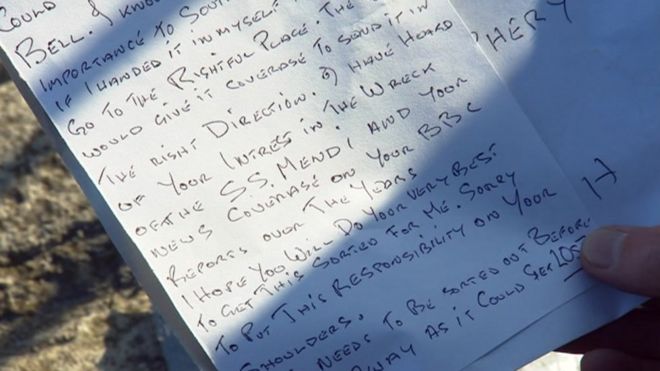 COULD
BELL. I KNOW
IMPORTANCE TO SOUTH
IF I HANDED IT IN MYSELF
GO TO THE RIGHTFUL PLACE. THE
WOULD GIVE IT COVERAGE TO SEND IT IN
THE RIGHT DIRECTION. I HAVE HEARD
OF YOUR INTRESS IN THE WRECK
OF THE SS. MENDI AND YOUR
NEWS COVERAGE ON YOUR BBC
REPORTS OVER THE YEARS
I HOPE YOU WILL DO YOUR VERY BEST
TO GET THIS SORTED FOR ME. SORRY
TO PUT THIS RESPONSIBILITY ON YOUR
SHOULDERS.
NEEDS TO BE SORTED OUT BEFORE
AWAY AS IT COULD GET LOST
HERY
H